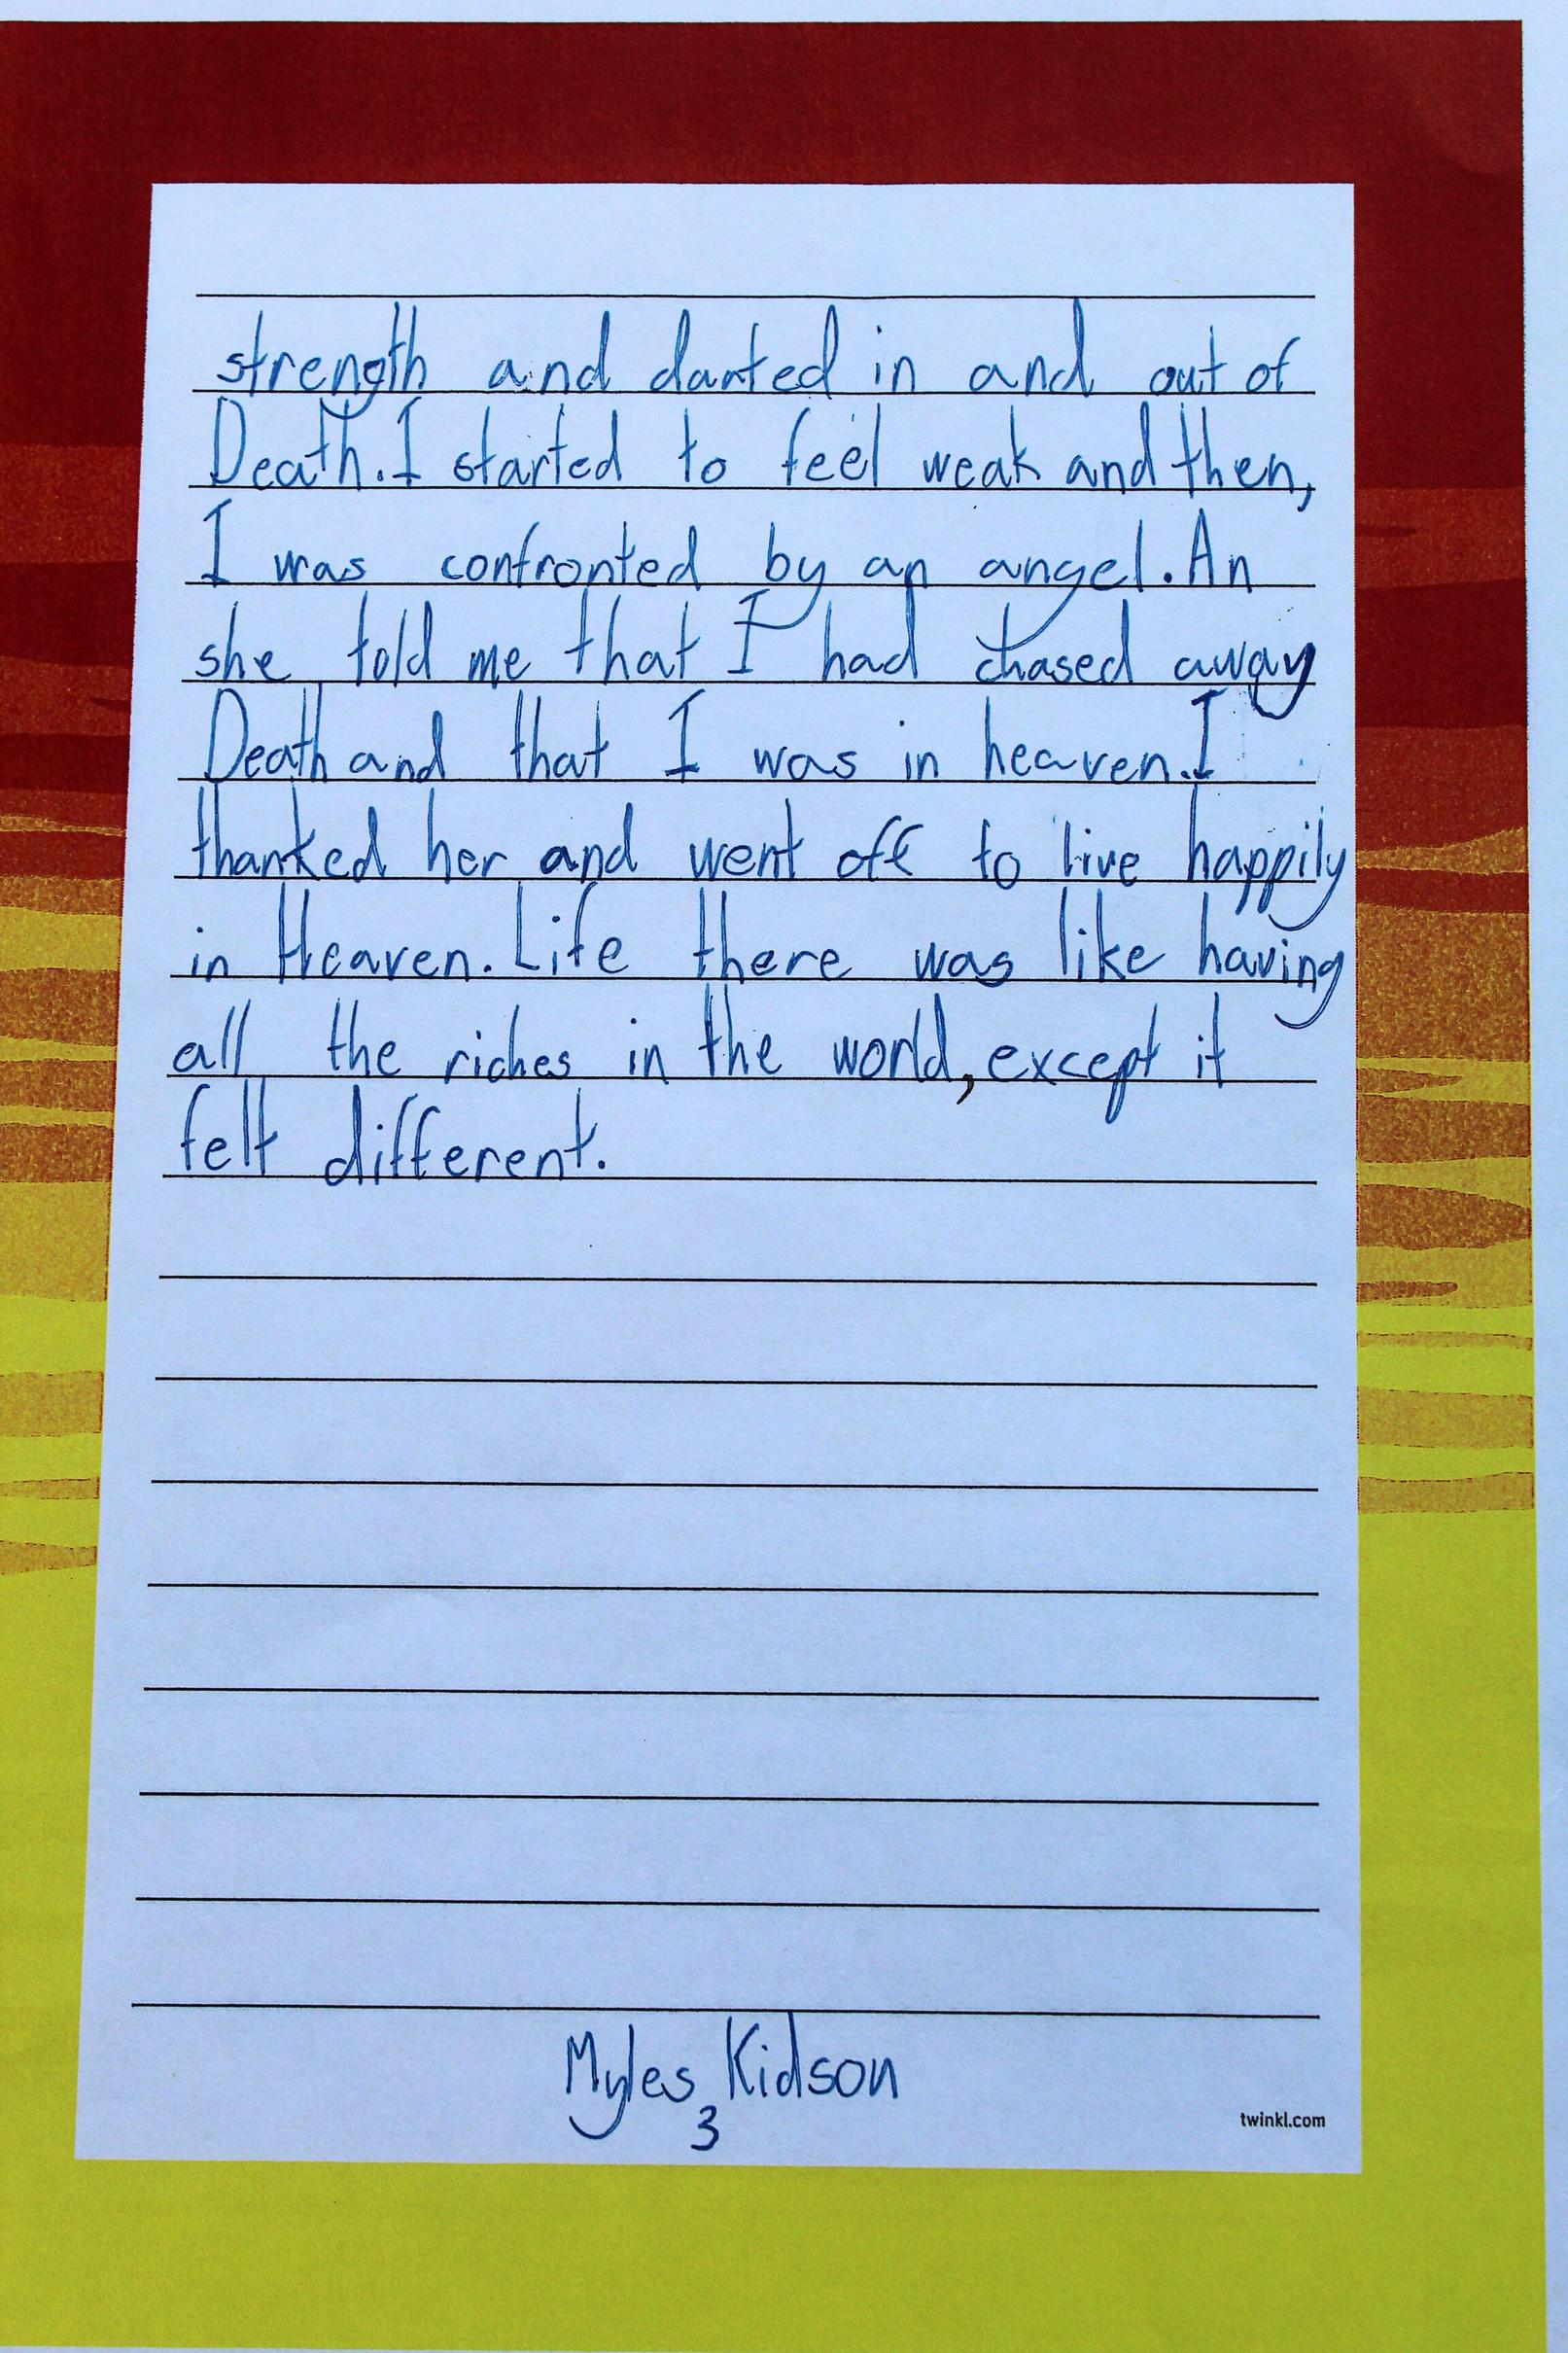 strength and darted in and out of
Death. I started to feel weak and then,
I was confronted by an angel. An
she told me that I had chased away
Death and that I was in heaven. I
thanked her and went off to live happily
in Heaven. Life there was like having
all the riches in the world, except it
felt different.
Myles Kidson
3
twinkl.com